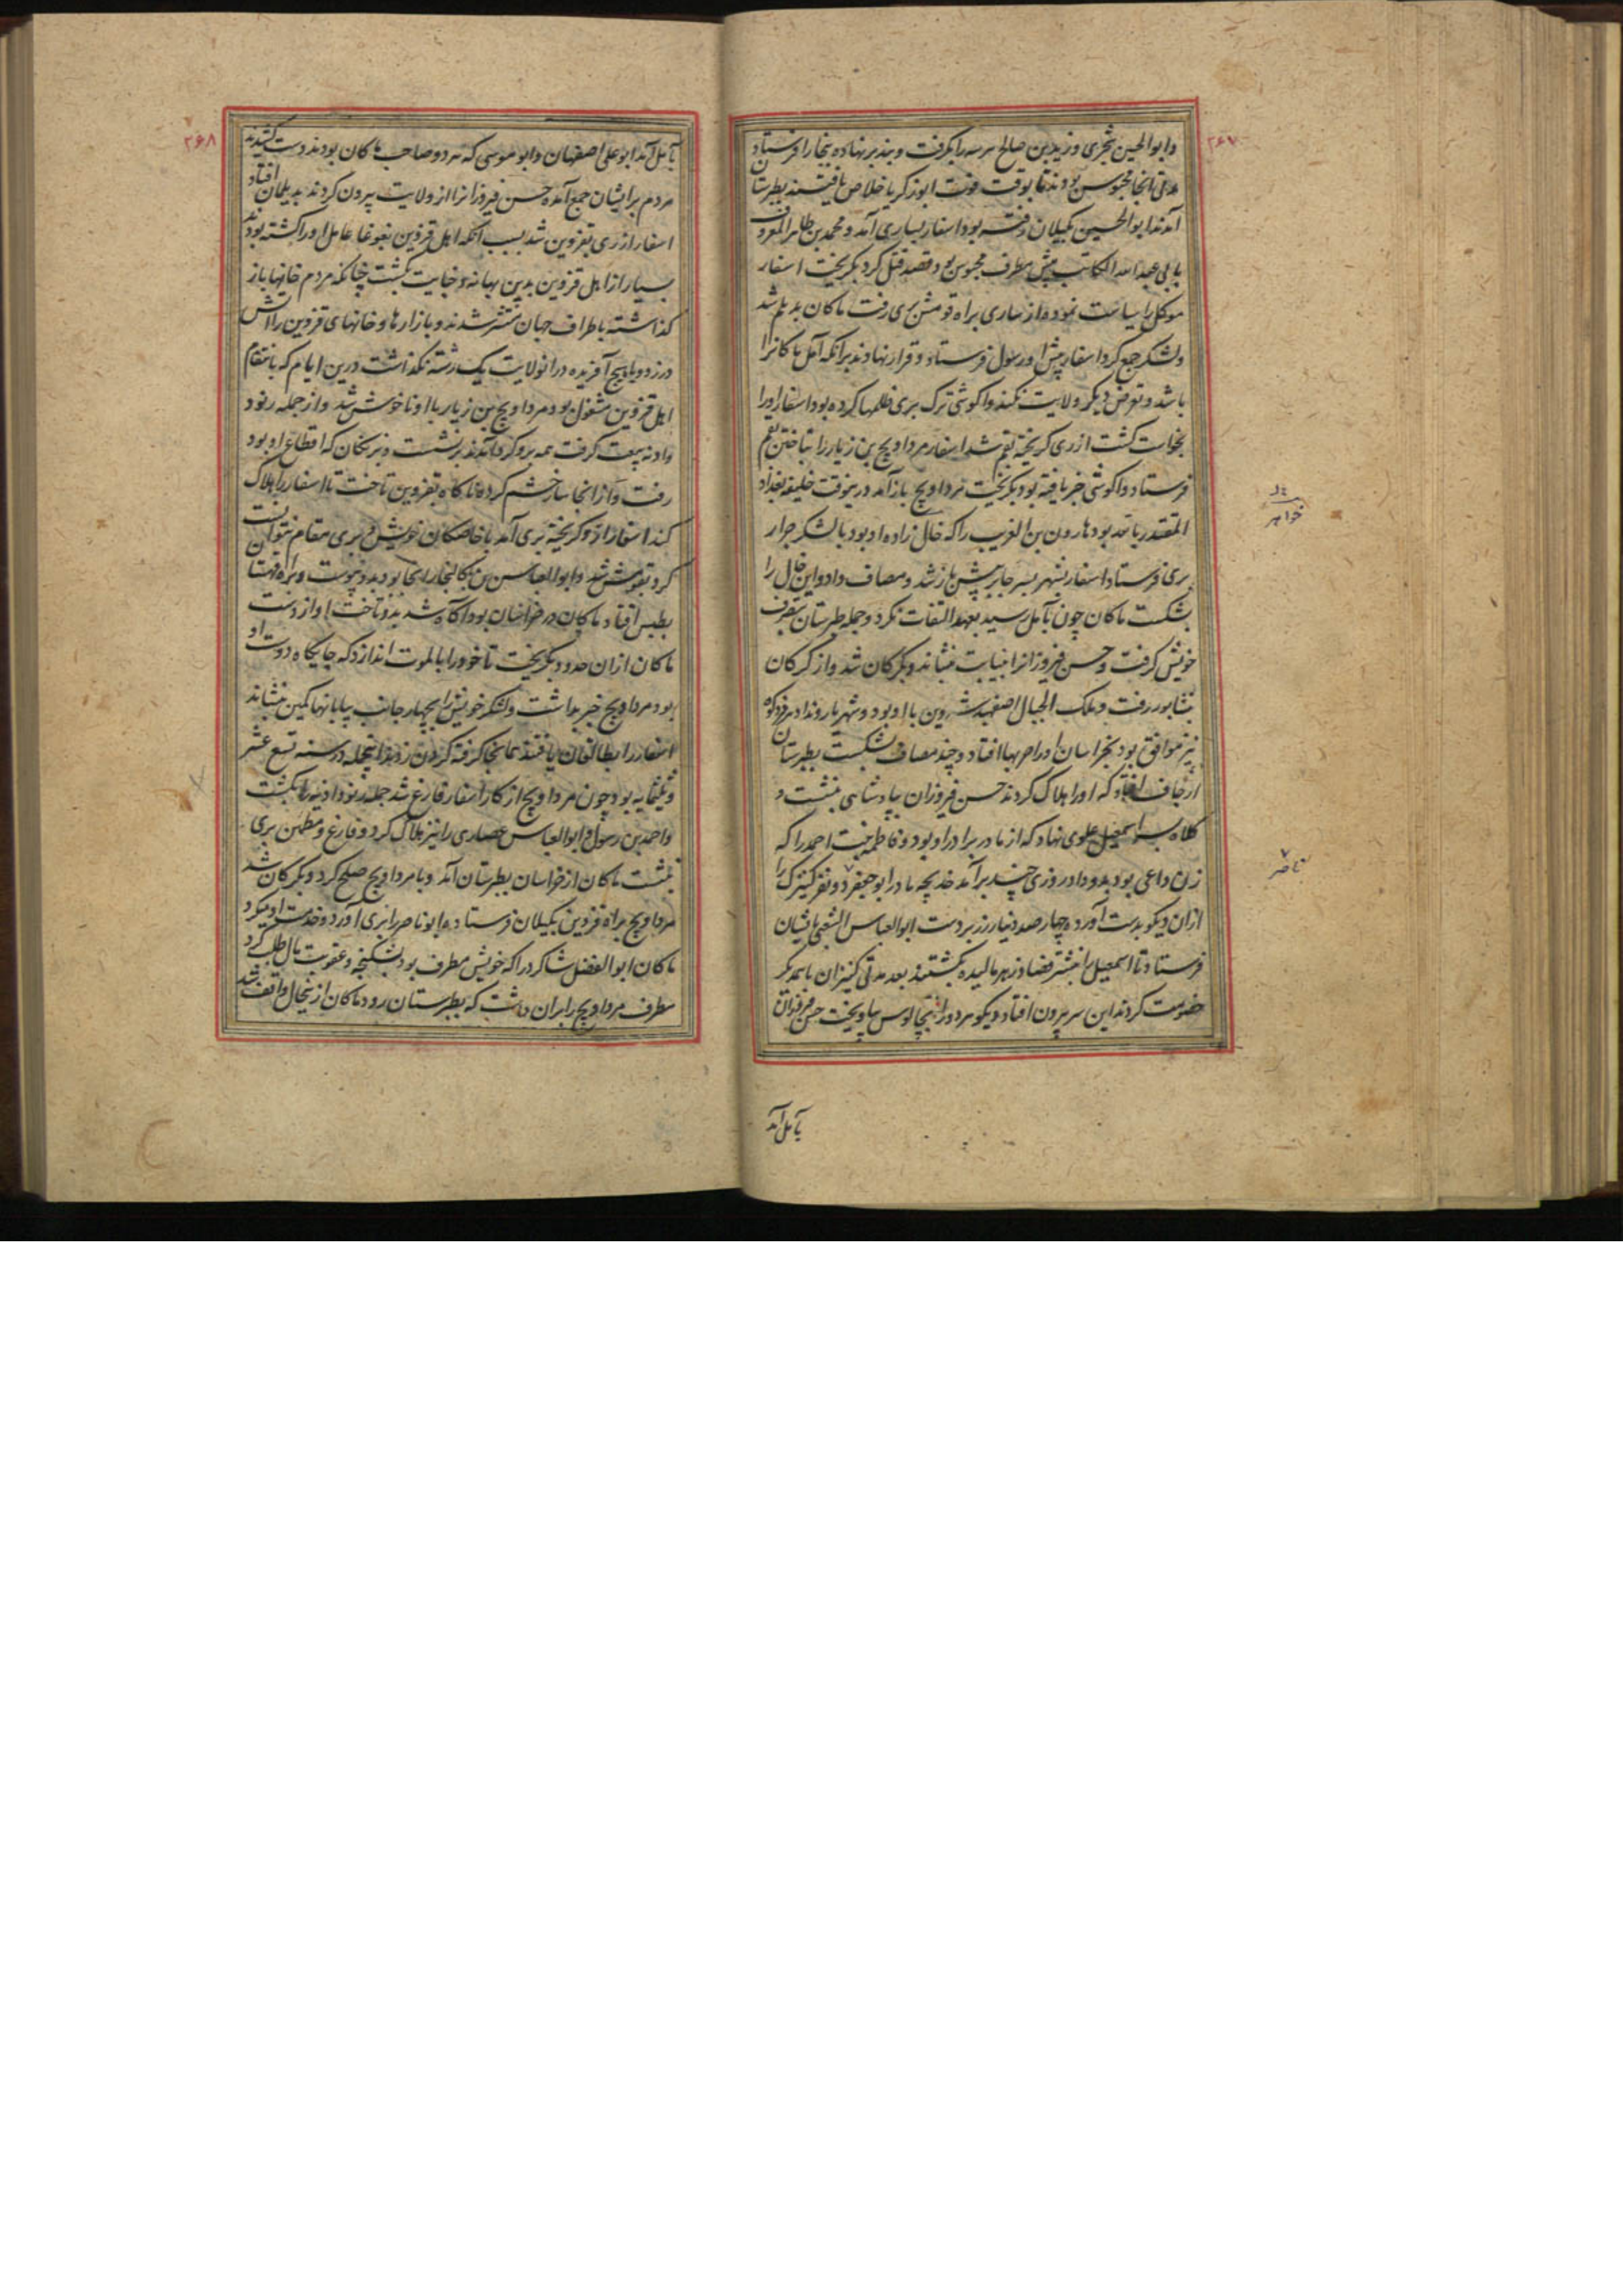 ۲۶۷
وابوالحسین شجری و زید بن صالح هر سه را بگرفت و بند بر نهاده بخارا فرستاد
مدتی آنجا محبوس بودند تا بوقت فوت ابوزکریا خلاص یافتند بطبرستان
آمدند ابوالحسین بگیلان رفته بود اسفار بساری آمد و محمد بن طاهر المعروف
بابی عبدالله الکاتب پیش مطرف محبوس بود قصد قتل کرد بگریخت اسفار
موکل را سیاست نموده از ساری براه قومش بری رفت ماکان بدیلم شد
ولشکر جمع کرد اسفار پیش او رسول فرستاد و قرار نهادند برآنکه آمل ماکانرا
باشد و تعرض دیگر ولایت نکند واکوشی ترک بری ظلمها کرده بود اسفار اورا
بخواست کشت از ری گریخته بقم شد اسفار مرداویج بن زیار را بتاختن بقم
فرستاد واکوشی خبر یافته بود بگریخت مرداویج باز آمد درینوقت خلیفه بغداد
المقتدر بالله بود هارون بن الغریب را که خال زاده او بود با لشکر جرار
بری فرستاد اسفار بشهر بسر جابر پیش باز شد و مصاف داد و این خال را
بشکست ماکان چون بآمل رسید بعهد التفات نکرد و جمله طبرستان بتصرف
خویش گرفت و حسن فیروزانرا بنیابت بنشاند و بگرگان شد و از گرگان
بنشابور رفت و ملک الجبال اصفهبد شروین با او بود و شهریار ونداد هرمزدکوه
نیز موافق بود بخراسان اورا حربها افتاد و چند مصاف بشکست بطبرستان
ارجاف افتاد که اورا هلاک کردند حسن فیروزان بپادشاهی بنشست و
کلاه بر سر اسمعیل علوی نهاد که از مادر برادر او بود و فاطمه بنت احمد را که
زن داعی بود بدو داد روزی چند برآمد خدیجه مادر ابو جعفر دو نفر کنیزک را
ازان دیکو بدست آورد و چهار صد دینار زر بر دست ابوالعباس الشعبی بایشان
فرستاد تا اسمعیل را بنشتر فصاد زهر مالیده بکشتند بعد مدتی کنیزان با همدیگر
خصومت کردند این سر بیرون افتاد دیکو هر دو را بچالوس بیاویخت حسن فیروزان
بآمل آمد
خواهر
ناصر
۲۶۸
بآمل آمد ابو علی اصفهان وابو موسی که هر دو صاحب ماکان بودند دست کشیدند
مردم برایشان جمع آمده حسن فیروزانرا از ولایت بیرون کردند بدیلمان افتاد
اسفار از ری بقزوین شد بسبب آنکه اهل قزوین بغوغا عامل اورا کشته بودند
بسیار از اهل قزوین بدین بهانه و خیانت بکشت چنانکه مردم خانها باز
گذاشته باطراف جهان منتشر شدند و بازارها و خانهای قزوین را آتش
در زد و باویج آفریده درانولایت یک رشته نگذاشت درین ایام که بانتقام
اهل قزوین مشغول بود مرداویج بن زیار با او ناخوش شد و از جمله رنود
وادنه بیعت گرفت همه برو گرد آمدند برنشست و بزنجان که اقطاع او بود
رفت و از انجا ساز خشم کرده ناگاه بقزوین تاخت تا اسفار را هلاک
کند اسفار ازو گریخته بری آمد با خاصگان خویش و بری مقام نتوانست
کرد بقومش شد و ابوالعباس بن کالنجار انجا بود بدو پیوست و براه قهستان
بطبس افتاد ماکان در خراسان بود آگاه شد بدو تاخت او از دست
ماکان ازان حدود بگریخت تا خودرا بالموت اندازد که جایگاه دوست او
بود مرداویج خبر بداشت و لشکر خویش را بچهار جانب بیابانها کمین بنشاند
اسفار را بطالقان یافتند همانجا گرفته گردن زدند اینجمله در سنه تسع عشر
و ثلثمایه بود چون مرداویج از کار اسفار فارغ شد جمله رنود ادنیه را بکشت
واحمد بن رسول و ابوالعباس حصاری را نیز هلاک کرد و فارغ و مطمئن بری
بنشست ماکان از خراسان بطبرستان آمد و با مرداویج صلح کرد و بگرگان شد
مرداویج براه قزوین بگیلان فرستاده ابو ناصر را بری آورد و خدمت او میکرد
ماکان ابوالفضل شاگرد را که خویش مطرف بود بشکنجه و عقوبت مال طلب کرد
مطرف مرداویج را بران داشت که بطبرستان رود ماکان ازینحال واقف شد